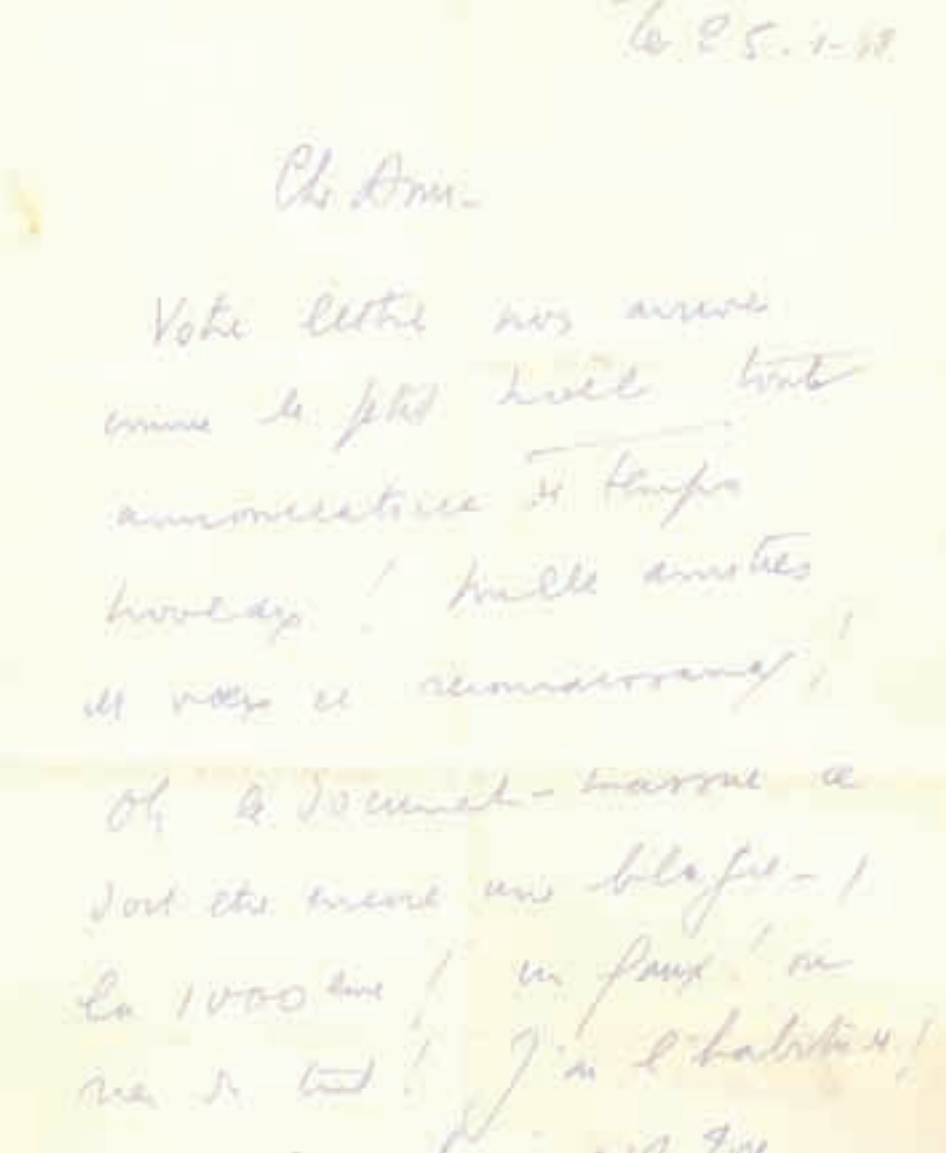 le 25.1-
Cher Ami-
Votre lettre nous arrive
comme le petit Noël toute
annonciatrice de temps
nouveaux ! Mille amitiés
et vœux et reconnaissance !
Oh le document-massue ce
doit être encore une blague - !
la 1000ème ! un faux ! ou
rien du tout ! J'ai l'habitude !